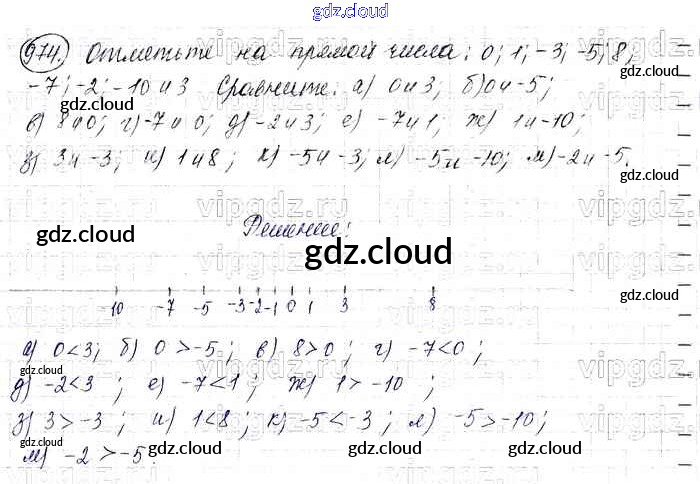 gdz.cloud
974. Отметьте на прямой числа: 0; 1; -3; -5; 8;
-7; -2; -10 и 3 Сравните: а) 0 и 3; б) 0 и -5;
в) 8 и 0; г) -7 и 0; д) -2 и 3; е) -7 и 1; ж) 1 и -10;
з) 3 и -3; и) 1 и 8; к) -5 и -3; л) -5 и -10; м) -2 и -5.
Решение:
-10 -7 -5 -3 -2 -1 0 1 3 8
а) 0<3; б) 0 >-5; в) 8>0; г) -7<0;
д) -2<3; е) -7<1; ж) 1>-10;
з) 3>-3; и) 1<8; к) -5<-3; л) -5>-10;
м) -2 >-5.
gdz.cloud
gdz.cloud
gdz.cloud
gdz.cloud
gdz.cloud
gdz.cloud
gdz.cloud
gdz.cloud
gdz.cloud
gdz.cloud
gdz.cloud
vipgdz.ru
vipgdz.ru
vipgdz.ru